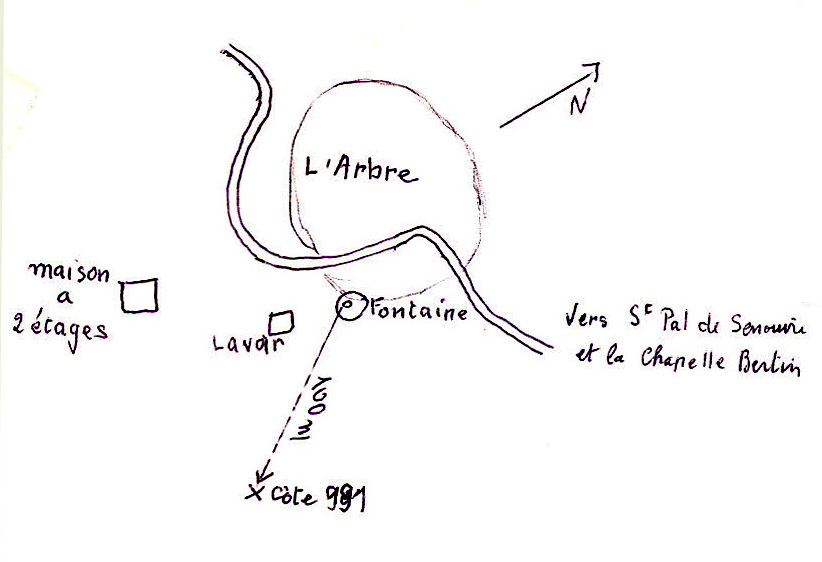 N
L'Arbre
maison
a
2 étages
Lavoir
Fontaine
Vers St Pal de Senouire
et la Chapelle Bertin
m
X Côte 991